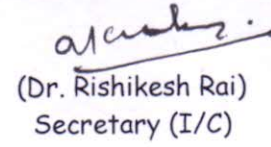 (Dr. Rishikesh Rai)
Secretary (I/C)